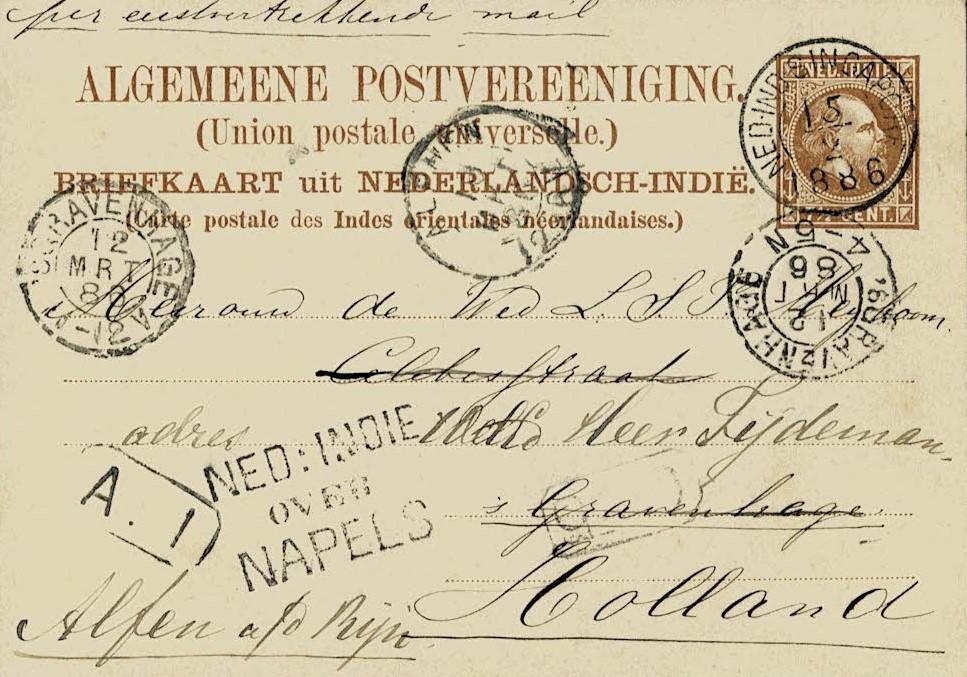 per eerstvertrekkende mail
ALGEMEENE POSTVEREENIGING.
(Union postale universelle.)
BRIEFKAART uit NEDERLANDSCH-INDIË.
(Carte postale des Indes orientales néerlandaises.)
NED-INDIE
15
1886
CENT.
'S GRAVENHAGE
12
MRT
86
11-12
'S GRAVENHAGE
12
MRT
86
4-5N
Mevrouw de Wed L. S.
Celebesstraat
adres WelEd Heer Tijdeman
's Gravenhage
Holland
Alfen a/d Rijn
A. 1
NED: INDIE
OVER
NAPELS